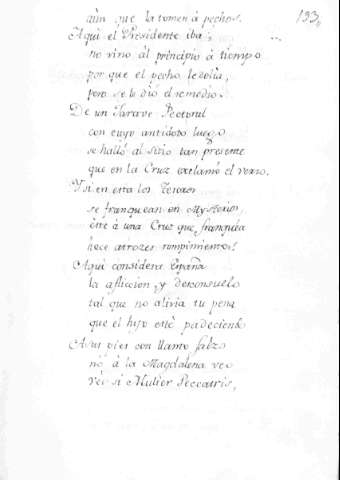 aún que la tomen á pechos.
193
Aquí el Presidente iba
no vino ál principio á tiempo
por que el pecho le dolia,
pero se le dió el remedio.
De un Jarave Pectoral
con cuyo antidoto luego
se halló al sitio tan presente
que en la Cruz exclamó el verso.
Y si en esta los Tesoros
se franquean en Mysterios,
esté á una Cruz que franquea
hace atrozes rompimientos!
Aqui considera España
la afliccion, y desconsuelo
tal que no alivia tu pena
que el hijo esté padeciendo
A sus pies con llanto
nó á la Magdalena veo
veo si Mulier Peccatris,